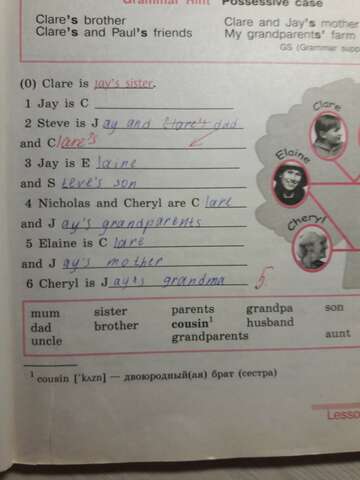 Grammar Hint Possessive case
Clare's brother
Clare's and Paul's friends
Clare and Jay's mother
My grandparents' farm
GS (Grammar supp
(0) Clare is Jay's sister.
1 Jay is C
2 Steve is J ay and Clare's dad
and C lare's
3 Jay is E laine
and S teve's son
4 Nicholas and Cheryl are C lare
and J ay's grandparents
5 Elaine is C lare
and J ay's mother
6 Cheryl is J ay's grandma
5
Clare
Elaine
Cheryl
mum sister parents grandpa son
dad brother cousin¹ husband
uncle grandparents aunt
¹ cousin ['kʌzn] — двоюродный(ая) брат (сестра)
Lesso